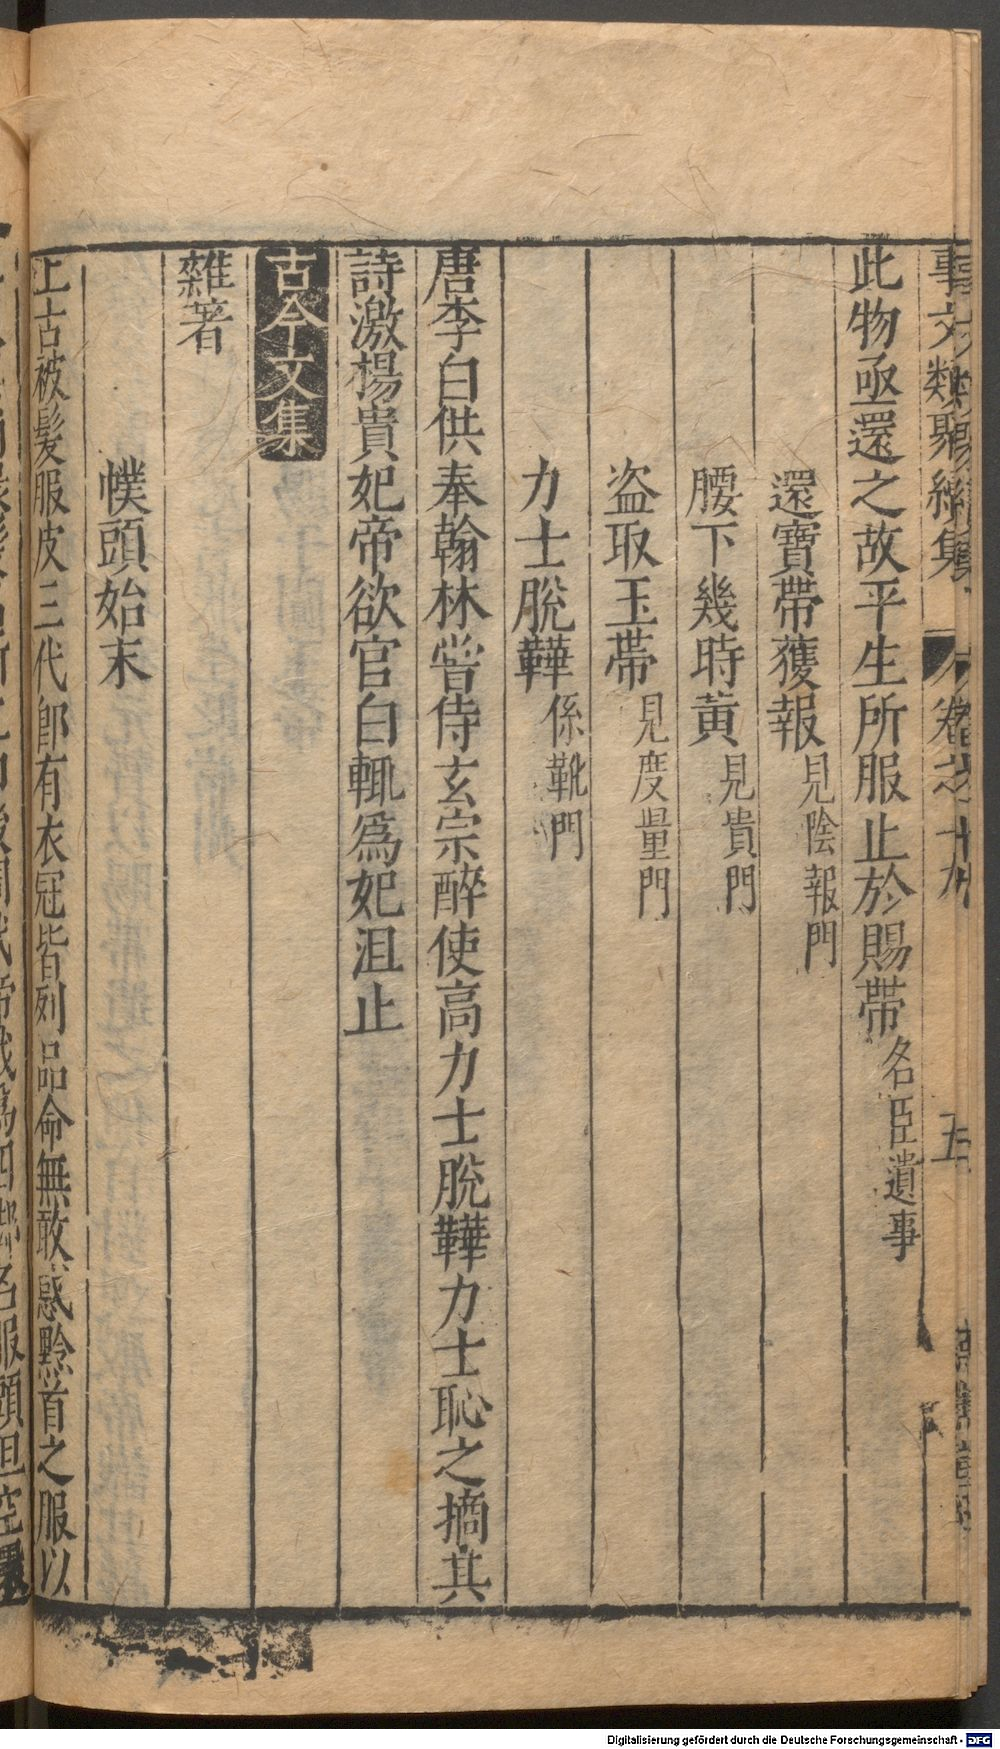 事文類聚續集 卷之十九 五
此物亟還之故平生所服止於賜帶名臣遺事
還寶帶獲報見陰報門
腰下幾時黃見貴門
盗取玉帶見度量門
力士脫鞾係靴門
唐李白供奉翰林甞侍玄宗醉使高力士脫鞾力士恥之摘其
詩激楊貴妃帝欲官白輒爲妃沮止
古今文集
雜著
幞頭始末
上古被髮服皮三代郎有衣冠皆列品命無敢惑黔首之服以
Digitalisierung gefördert durch die Deutsche Forschungsgemeinschaft - DFG